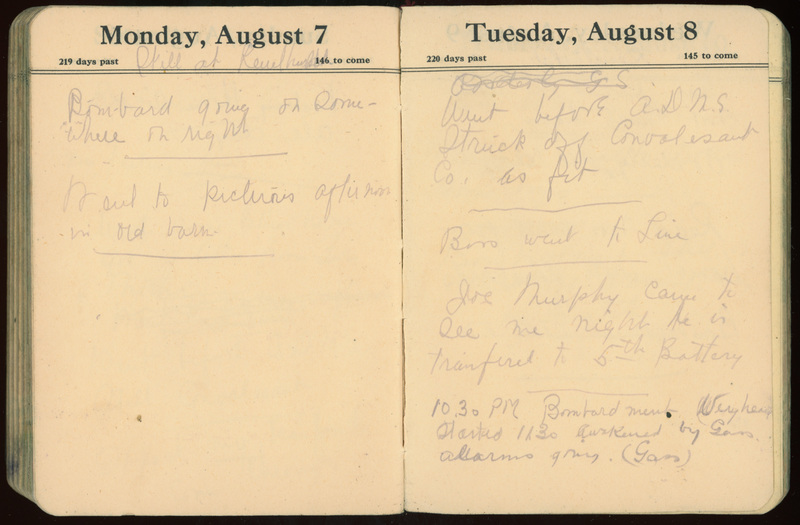 Monday, August 7
219 days past
146 to come
Still at
Bombard going on some-
where on right
Went to pictures afternoon
in old barn
Tuesday, August 8
220 days past
145 to come
Went before A.D.M.S.
Struck off Convalesant
Co. as fit
Boys went to Line
Joe Murphy came to
see me night he is
tranfered to 5th Battery
10.30 PM Bombardment
Started 11.30 awakened by Gass
allarms going. (Gass)